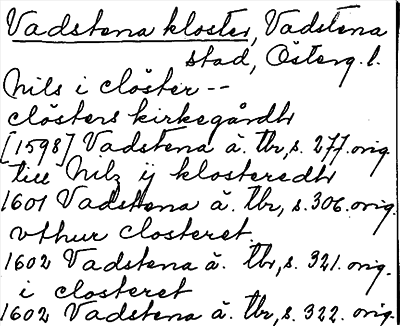 Vadstena kloster, Vadstena
stad, Österg. l.
Nils i clöster --
clösters kirkegårdh
[1598] Vadstena ä. tbr, s. 277. orig.
till Nilz ij klosteredh
1601 Vadstena ä. tbr, s. 306. orig.
vthur closteret.
1602 Vadstena ä. tbr, s. 321. orig.
i closteret
1602 Vadstena ä. tbr, s. 322. orig.